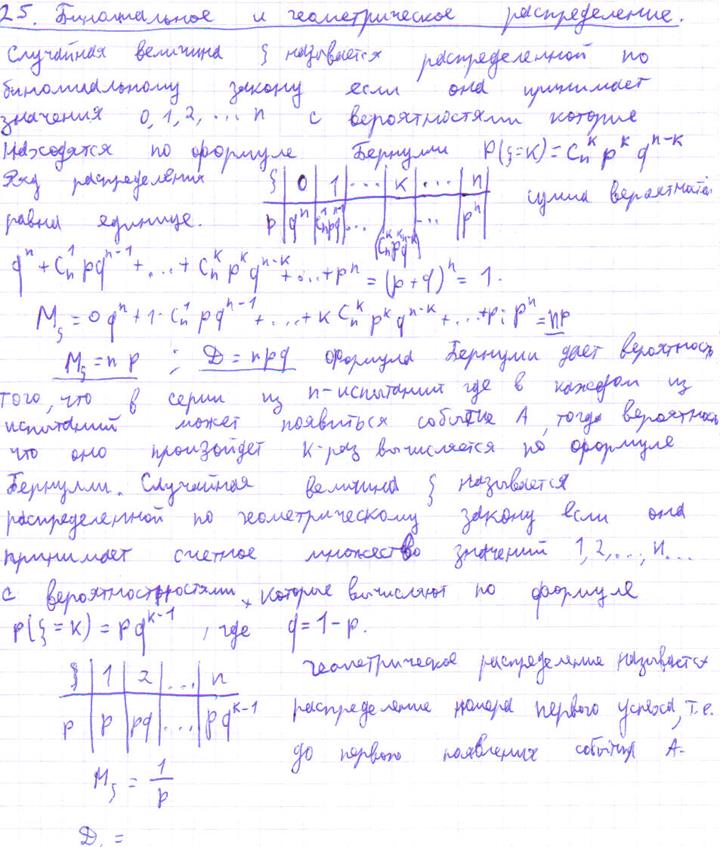 25. Биномиальное и геометрическое распределение.
Случайная величина ξ называется распределенной по
биномиальному закону если она принимает
значения 0, 1, 2, ... n с вероятностями которые
находятся по формуле Бернулли P(ξ=k) = C_n^k p^k q^{n-k}
Ряд распределения ξ | 0 | 1 | ... | k | ... | n сумма вероятностей
равна единице. p | q^n | C_n^1 p q^{n-1} | ... | C_n^k p^k q^{n-k} | ... | p^n
q^n + C_n^1 p q^{n-1} + ... + C_n^k p^k q^{n-k} + ... + p^n = (p+q)^n = 1.
M_ξ = 0 q^n + 1· C_n^1 p q^{n-1} + ... + k C_n^k p^k q^{n-k} + ... + p_i p^n = np
M_ξ = n p ; D = npq Формула Бернули дает вероятность
того, что в серии из n-испытаний где в каждом из
испытаний может появиться событие A, тогда вероятность
что оно произойдет k-раз вычисляется по формуле
Бернулли. Случайная величина ξ называется
распределенной по геометрическому закону если она
принимает счетное множество значений 1, 2, ..., n...
с вероятностями, которые вычисляют по формуле
p(ξ=k) = p q^{k-1}, где q = 1-p.
ξ | 1 | 2 | ... | n геометрическое распределение называется
p | p | pq | ... | p q^{k-1} распределение номера первого успеха, т.е.
до первого появления события A.
M_ξ = 1/p
D. =